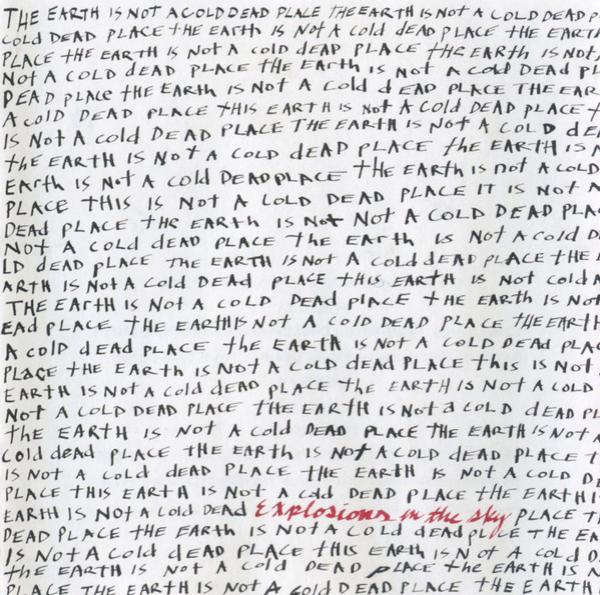 THE EARTH IS NOT A COLD DEAD PLACE THE EARTH IS NOT A COLD DEAD P
COLD DEAD PLACE THE EARTH IS NOT A COLD DEAD PLACE THE EARTH
PLACE THE EARTH IS NOT A COLD DEAD PLACE THE EARTH IS NOT
NOT A COLD DEAD PLACE THE EARTH IS NOT A COLD DEAD PL
DEAD PLACE THE EARTH IS NOT A COLD DEAD PLACE THE EAR
A COLD DEAD PLACE THIS EARTH IS NOT A COLD DEAD PLACE T
IS NOT A COLD DEAD PLACE THE EARTH IS NOT A COLD DE
THE EARTH IS NOT A COLD DEAD PLACE THE EARTH IS N
EARTH IS NOT A COLD DEAD PLACE THE EARTH IS NOT A COLD
PLACE THIS IS NOT A COLD DEAD PLACE IT IS NOT A
DEAD PLACE THE EARTH IS NOT NOT A COLD DEAD PLA
NOT A COLD DEAD PLACE THE EARTH IS NOT A COLD D
LD DEAD PLACE THE EARTH IS NOT A COLD DEAD PLACE THE
ARTH IS NOT A COLD DEAD PLACE THIS EARTH IS NOT COLD A
THE EARTH IS NOT A COLD DEAD PLACE THE EARTH IS NOT
EAD PLACE THE EARTH IS NOT A COLD DEAD PLACE THE EARTH
A COLD DEAD PLACE THE EARTH IS NOT A COLD DEAD PLA
PLACE THE EARTH IS NOT A COLD DEAD PLACE THIS IS NOT
EARTH IS NOT A COLD DEAD PLACE THE EARTH IS NOT A COLD
NOT A COLD DEAD PLACE THE EARTH IS NOT A COLD DEAD PL
THE EARTH IS NOT A COLD DEAD PLACE THE EARTH IS NOT A
COLD DEAD PLACE THE EARTH IS NOT A COLD DEAD PLACE T
IS NOT A COLD DEAD PLACE THE EARTH IS NOT A COLD D
PLACE THIS EARTH IS NOT A COLD DEAD PLACE THE EARTH I
EARTH IS NOT A COLD DEAD Explosions in the sky PLACE T
DEAD PLACE THE EARTH IS NOT A COLD DEAD PLACE THE EA
IS NOT A COLD DEAD PLACE THIS EARTH IS NOT A COLD D
THE EARTH IS NOT A COLD DEAD PLACE THE EARTH IS N
PLACE THE EARTH IS NOT A COLD DEAD PLACE THE EARTH